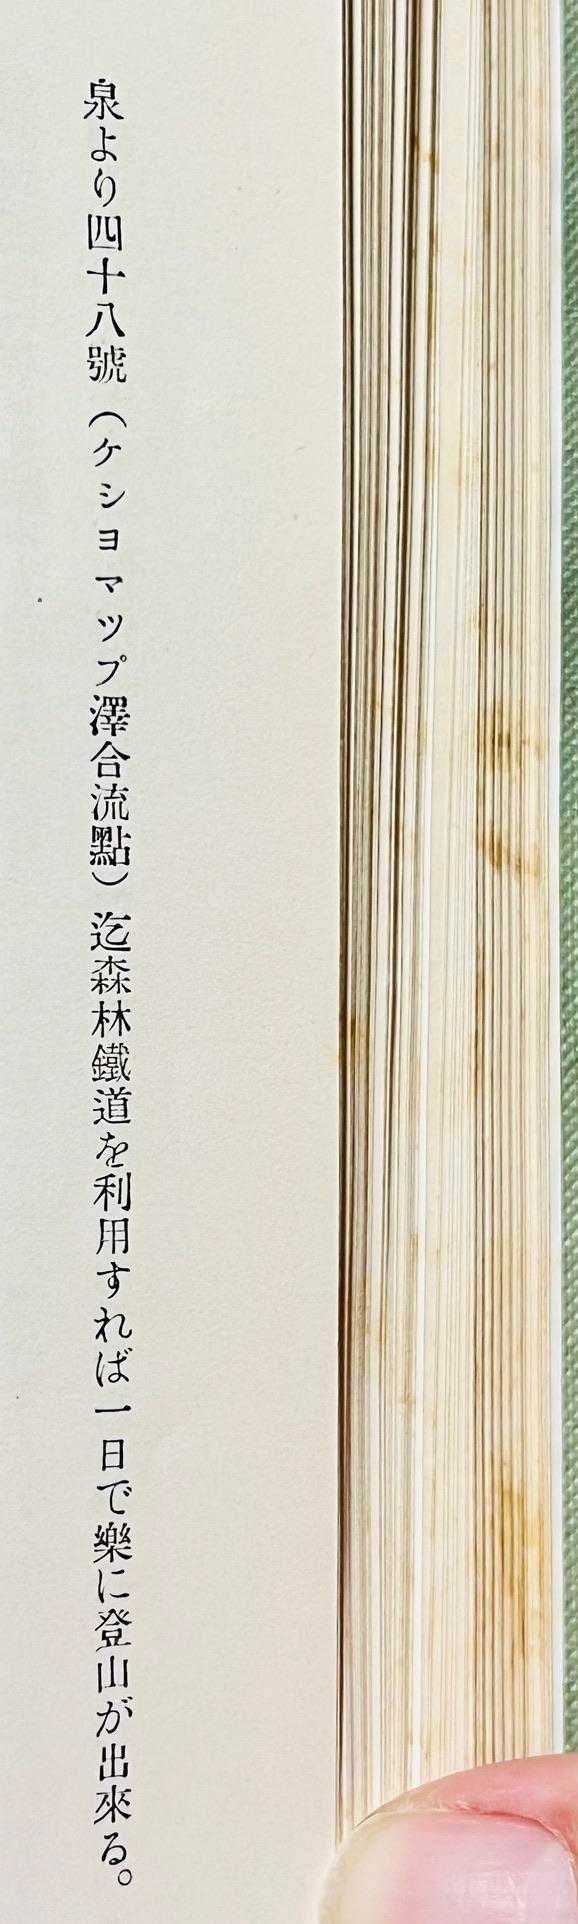 泉より四十八號（ケショマップ澤合流點）迄森林鐵道を利用すれば一日で樂に登山が出來る。